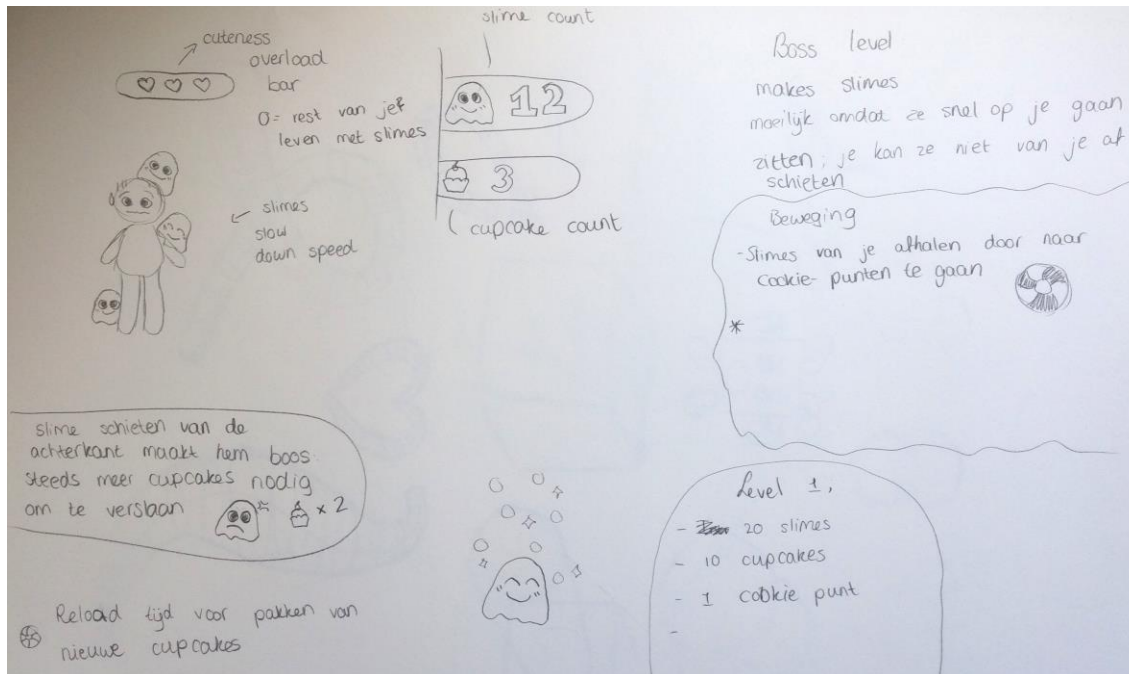 cuteness
overload
bar
0 = rest van je
leven met slimes
slimes
slow
down speed
slime count
12
3
cupcake count
Boss level
makes slimes
moeilijk omdat ze snel op je gaan
zitten; je kan ze niet van je af
schieten
Beweging
- Slimes van je afhalen door naar
cookie- punten te gaan
*
slime schieten van de
achterkant maakt hem boos
steeds meer cupcakes nodig
om te verslaan
x 2
Reload tijd voor pakken van
nieuwe cupcakes
Level 1,
- 20 slimes
- 10 cupcakes
- 1 cookie punt
-